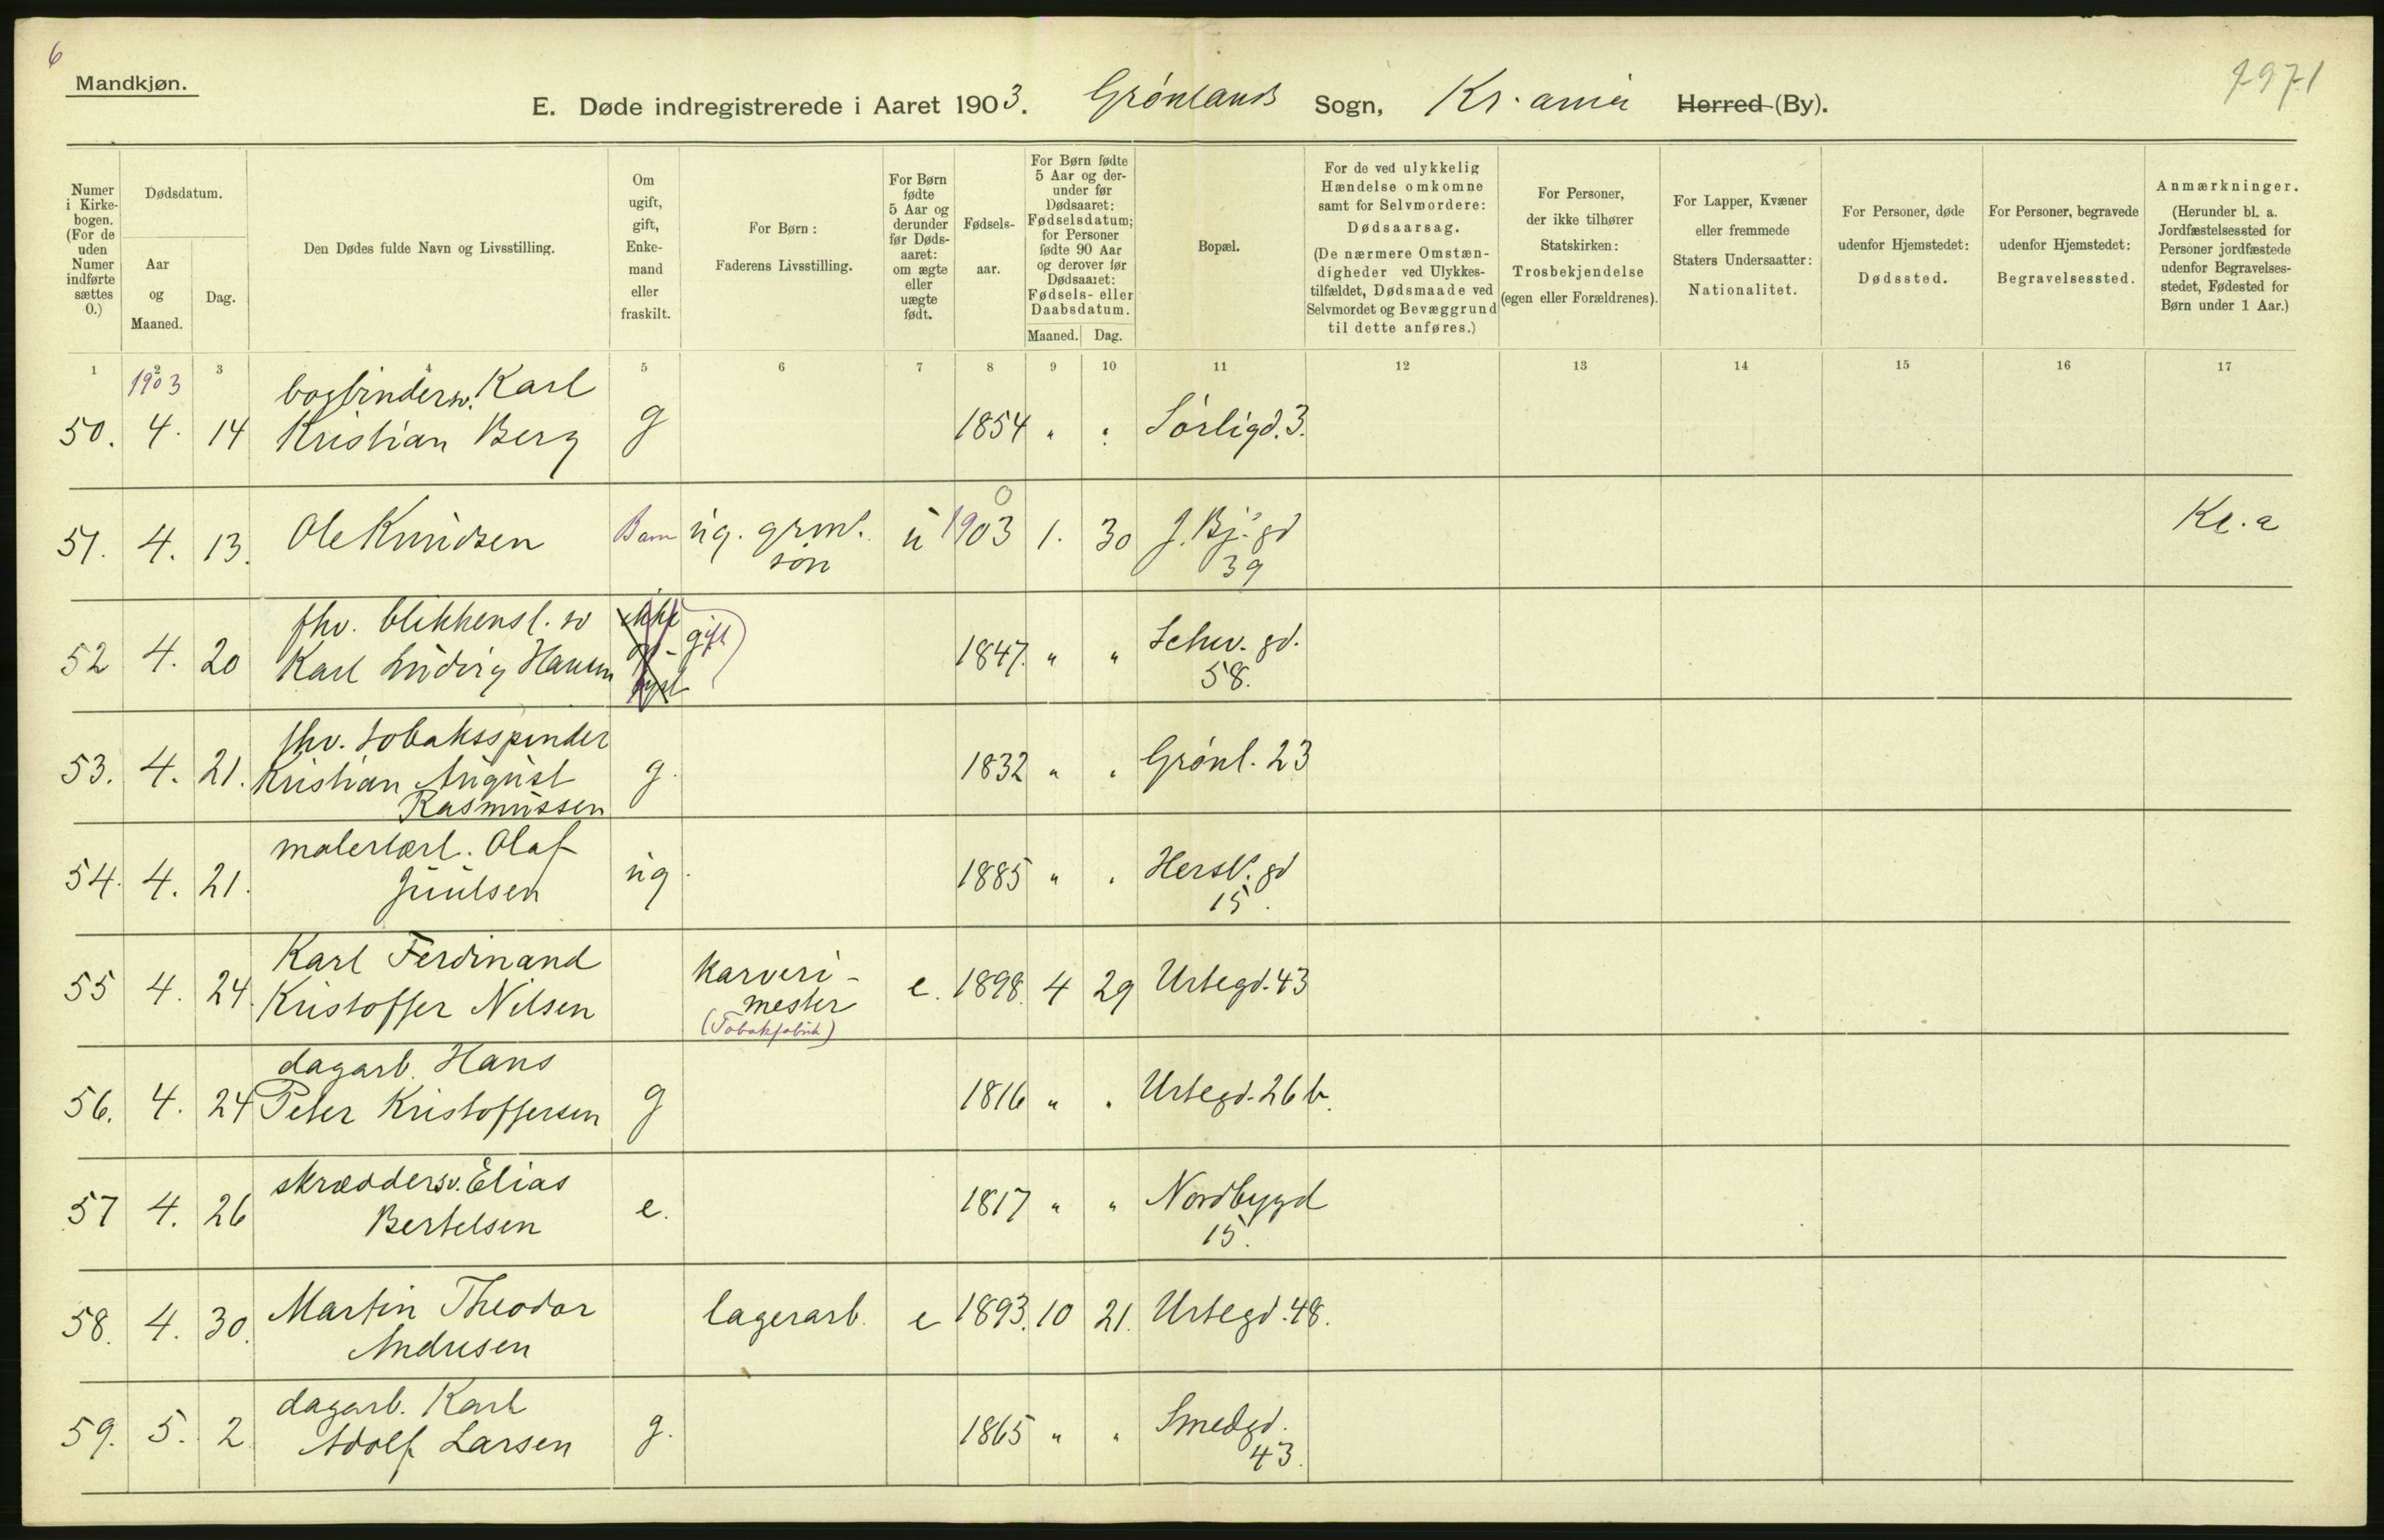 6
Mandkjøn.
7971
E. Døde indregistrerede i Aaret 1903. Grønlands Sogn, Kr.ania Herred (By).
Numer i Kirke-bogen. (For de uden Numer indførte sættes 0.)
Dødsdatum.
Aar og Maaned.
Dag.
Den Dødes fulde Navn og Livsstilling.
Om ugift, gift, Enke-mand eller fraskilt.
For Børn: Faderens Livsstilling.
For Børn fødte 5 Aar og derunder før Døds-aaret: om ægte eller uægte født.
Fødsels-aar.
For Børn fødte 5 Aar og der-under før Dødsaaret: Fødselsdatum; for Personer fødte 90 Aar og derover før Dødsaaret: Fødsels- eller Daabsdatum.
Maaned. Dag.
Bopæl.
For de ved ulykkelig Hændelse omkomne samt for Selvmordere: Dødsaarsag. (De nærmere Omstæn-digheder ved Ulykkes-tilfældet, Dødsmaade ved Selvmordet og Bevæggrund til dette anføres.)
For Personer, der ikke tilhører Statskirken: Trosbekjendelse (egen eller Forældrenes).
For Lapper, Kvæner eller fremmede Staters Undersaatter: Nationalitet.
For Personer, døde udenfor Hjemstedet: Dødssted.
For Personer, begravede udenfor Hjemstedet: Begravelsessted.
Anmærkninger. (Herunder bl. a. Jordfæstelsessted for Personer jordfæstede udenfor Begravelses-stedet, Fødested for Børn under 1 Aar.)
1 2 3 4 5 6 7 8 9 10 11 12 13 14 15 16 17
1903
bogbindersv. Karl
50. 4. 14 Kristian Berg g 1854 " " Sørligd. 3.
0
51. 4. 13. Ole Knudsen Barn ug. u 1903 1. 30 J. Bj. gd Kr.a
søn 39
fhv. blikkensl. sv ikke gift
52 4. 20 Karl Ludvig Hansen 1847. " " Schw. gd.
58.
fhv. tobaksspinder
53. 4. 21. Kristian August g. 1832 " " Grønl. 23
Rasmussen
malerlærl. Olaf
54. 4. 21. Juulsen ug. 1885 " " Hersl. gd
15.
Karl Ferdinand karveri-
55 4. 24. Kristoffer Nilsen mester e. 1898. 4 29 Urtegd. 43
(Tobakfabrik)
dagarb. Hans
56. 4. 24 Peter Kristoffersen g 1816 " " Urtegd. 26 b.
skræddersv. Elias
57 4. 26 Bertelsen e. 1817 " " Nordbygd
15.
58. 4. 30. Martin Theodor lagerarb. e 1893. 10 21. Urtegd. 48.
Andresen
dagarb. Karl
59. 5. 2. Adolf Larsen g. 1865 " " Smedgd.
43.